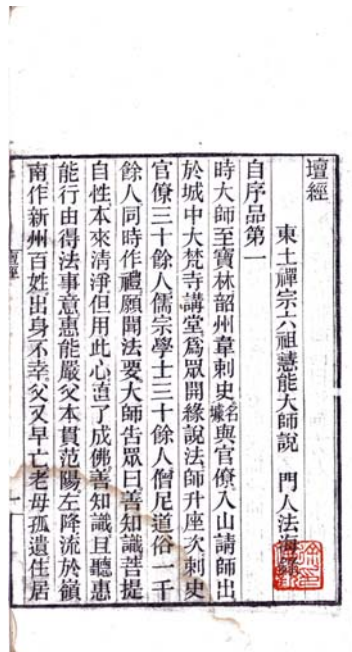 壇經
東土禪宗六祖慧能大師說 門人法海錄
自序品第一
時大師至寶林韶州韋刺史名璩與官僚入山請師出
於城中大梵寺講堂爲眾開緣說法師升座次刺史
官僚三十餘人儒宗學士三十餘人僧尼道俗一千
餘人同時作禮願聞法要大師告眾曰善知識菩提
自性本來清淨但用此心直了成佛善知識且聽惠
能行由得法事意惠能嚴父本貫范陽左降流於嶺
南作新州百姓此身不幸父又早亡老母孤遺住居
壇經
一